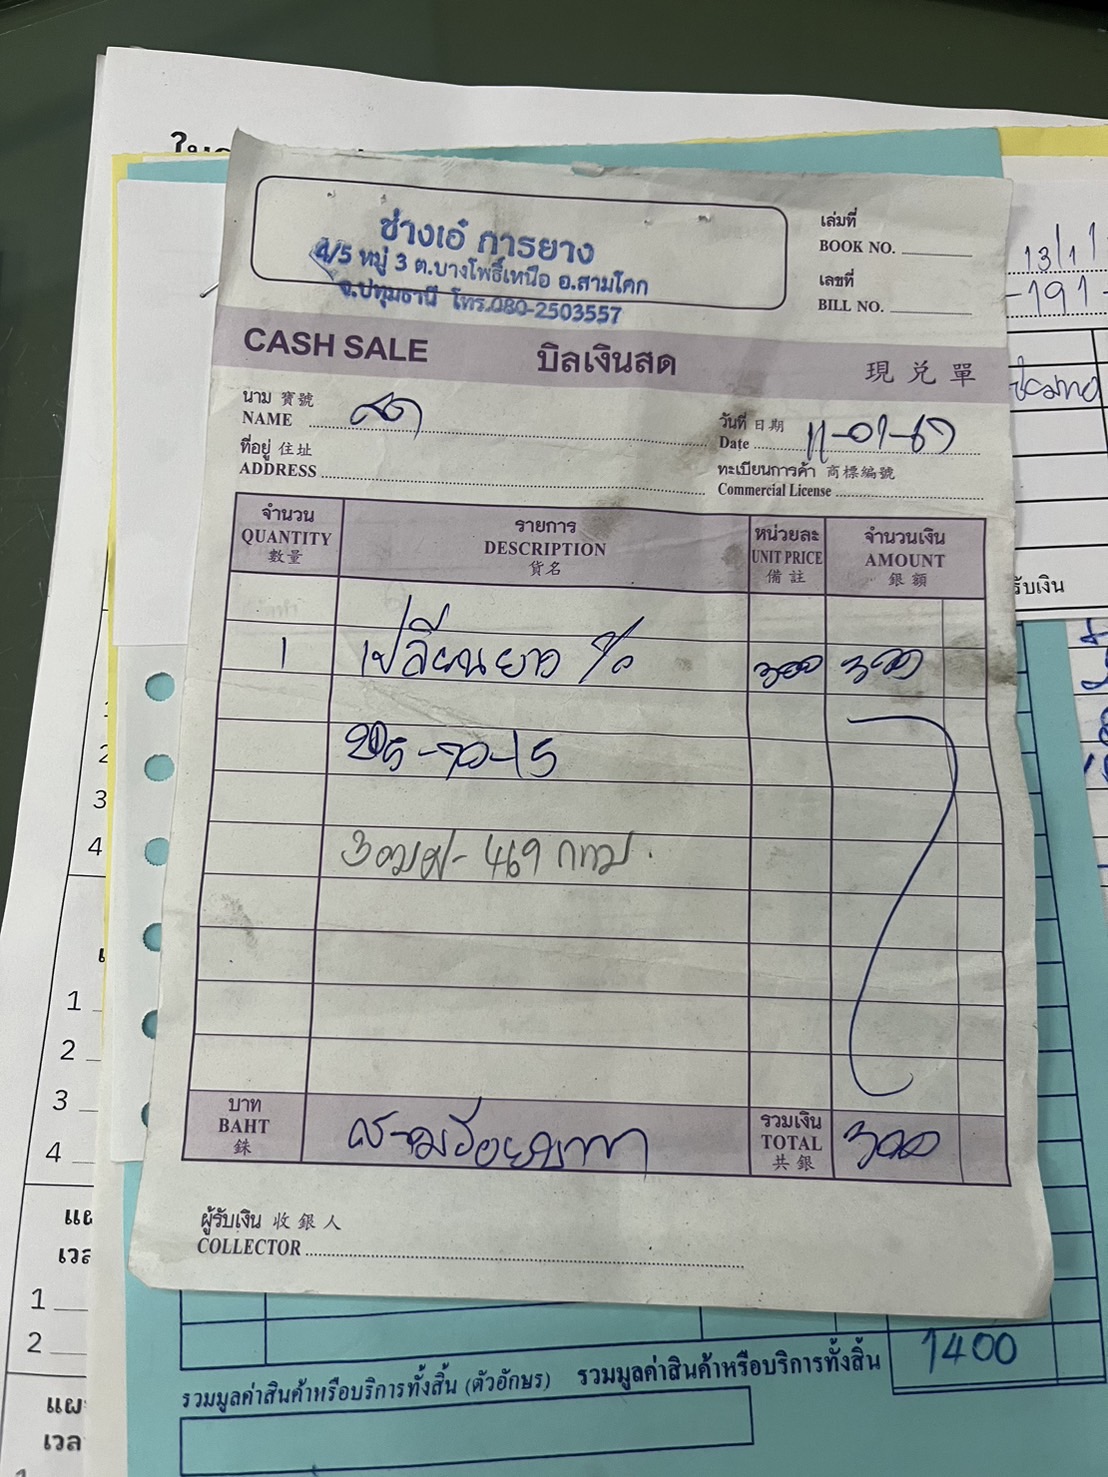 ช่างเอ๋ การยาง
4/5 หมู่ 3 ต.บางโพธิ์เหนือ อ.สามโคก
จ.ปทุมธานี โทร.080-2503557
เล่มที่
BOOK NO.
เลขที่
BILL NO.
CASH SALE บิลเงินสด 現兑單
นาม 寶號
NAME สด
วันที่ 日期
Date 11-01-69
ที่อยู่ 住址
ADDRESS
ทะเบียนการค้า 商標編號
Commercial License
จำนวน
QUANTITY
數量
รายการ
DESCRIPTION
貨名
หน่วยละ
UNIT PRICE
備註
จำนวนเงิน
AMOUNT
銀額
1 เปลี่ยนยาง 300 300
205-70-15
469 กทม.
บาท
BAHT
銖
สามร้อยบาท
รวมเงิน
TOTAL
共銀
300
ผู้รับเงิน 收銀人
COLLECTOR
13/1/
-191-
รับเงิน
1
2
3
4
1
2
3
4
เวลา
1
2
เวลา
1400
รวมมูลค่าสินค้าหรือบริการทั้งสิ้น (ตัวอักษร) รวมมูลค่าสินค้าหรือบริการทั้งสิ้น